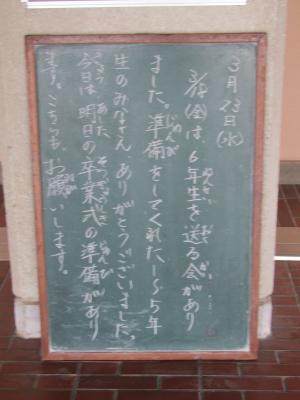 3月23日(水)
3/18(金)は、6年生を送る会があり
ました。準備をしてくれた1~5年
生のみなさん、ありがとうございました。
今日は、明日の卒業式の準備があり
ます。こちらも、お願いします。